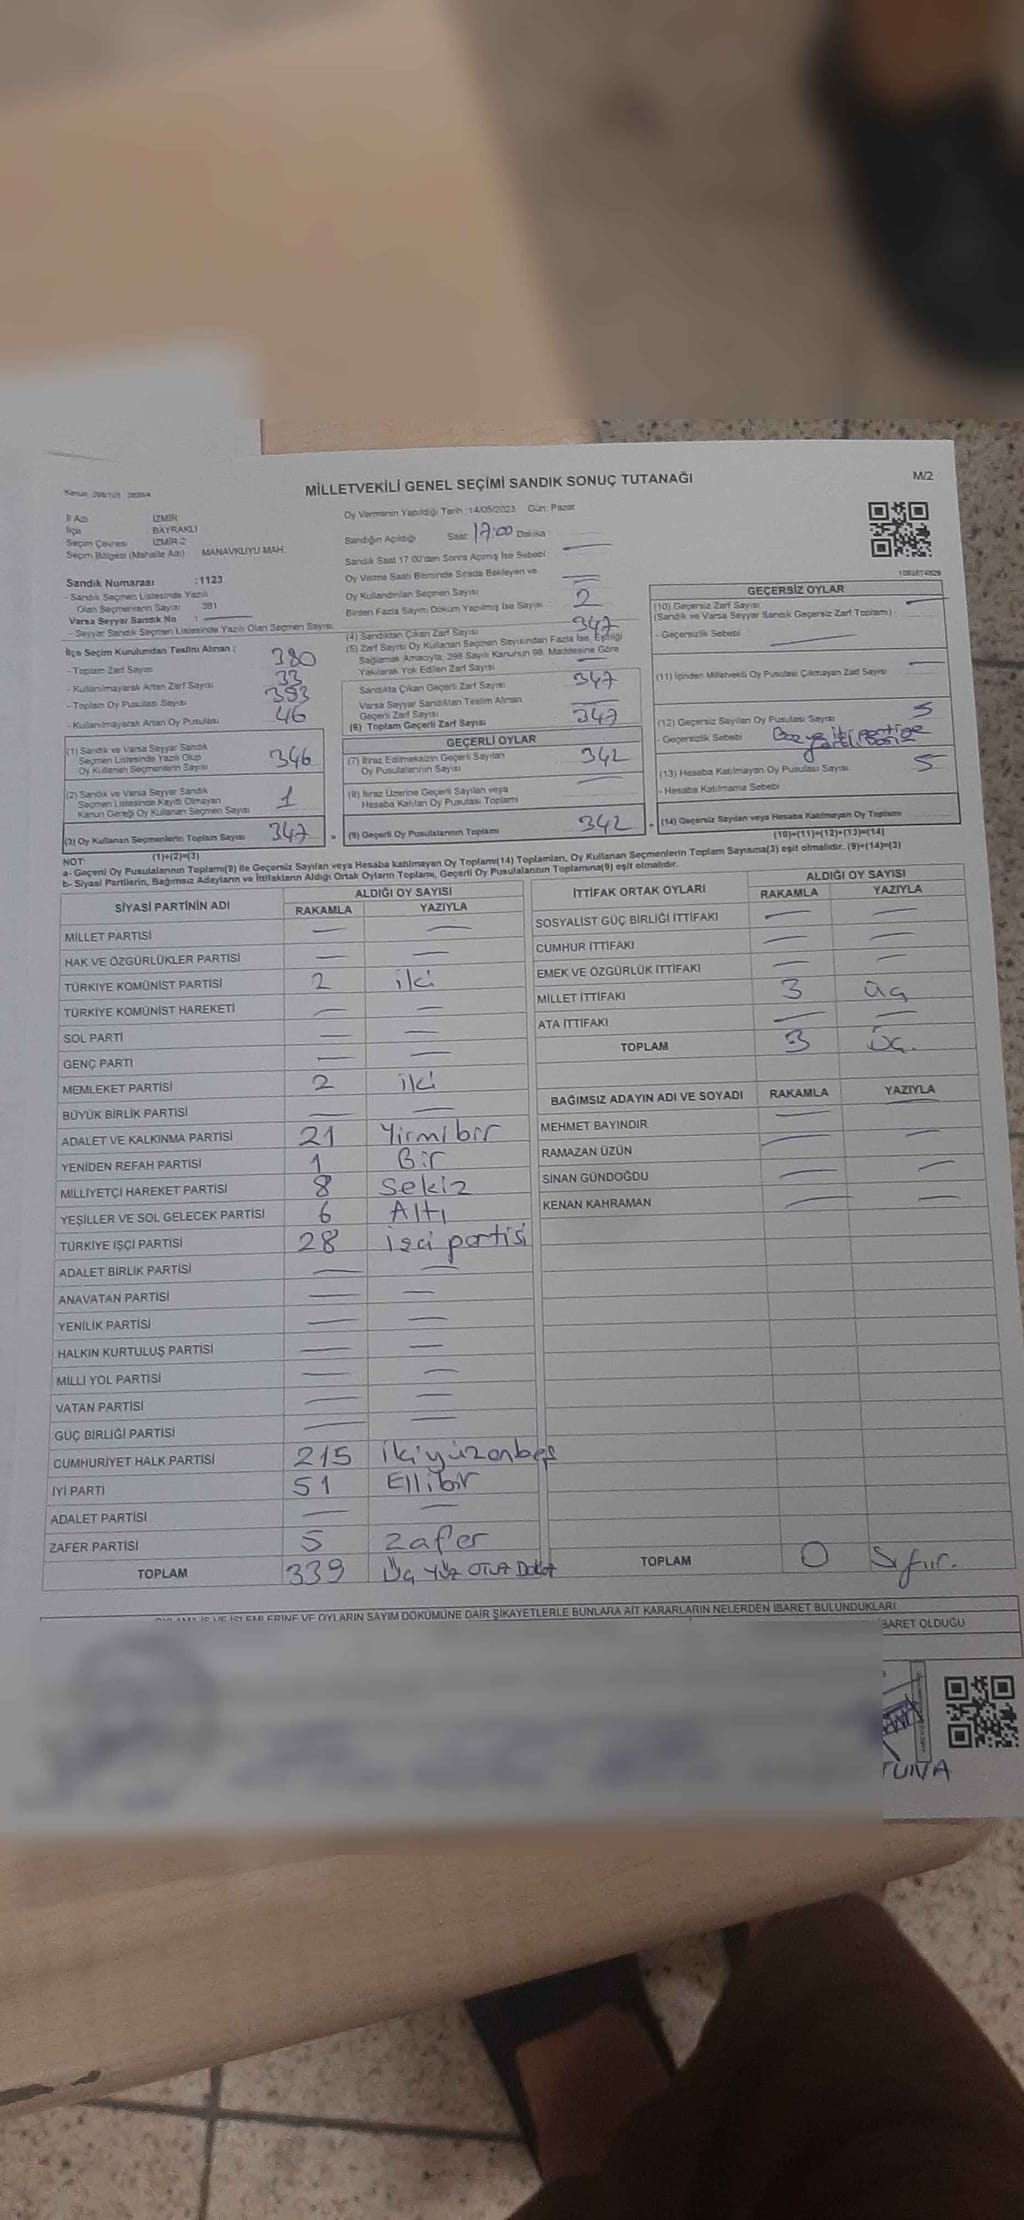 MİLLETVEKİLİ GENEL SEÇİMİ SANDIK SONUÇ TUTANAĞI
M/2
İl Adı İZMİR
İlçe BAYRAKLI
Seçim Çevresi İZMİR-2
Seçim Bölgesi (Mahalle Adı) MANAVKUYU MAH.
Sandık Numarası :1123
- Sandık Seçmen Listesinde Yazılı
Olan Seçmenlerin Sayısı : 381
Varsa Seyyar Sandık No :
- Seyyar Sandık Seçmen Listesinde Yazılı Olan Seçmen Sayısı
İlçe Seçim Kurulundan Teslim Alınan ;
- Toplam Zarf Sayısı 380
- Kullanılmayarak Artan Zarf Sayısı 33
- Toplam Oy Pusulası Sayısı 393
- Kullanılmayarak Artan Oy Pusulası 46
(1) Sandık ve Varsa Seyyar Sandık
Seçmen Listesinde Yazılı Olup
Oy Kullanan Seçmenlerin Sayısı 346
(2) Sandık ve Varsa Seyyar Sandık
Seçmen Listesinde Kayıtlı Olmayan
Kanun Gereği Oy Kullanan Seçmen Sayısı 1
(3) Oy Kullanan Seçmenlerin Toplam Sayısı 347 =
(1)+(2)=(3)
Oy Vermenin Yapıldığı Tarih :14/05/2023 Gün: Pazar
Sandığın Açıldığı Saat 17:00 Dakika
Sandık Saat 17.00'den Sonra Açılmış İse Sebebi —
Oy Verme Saati Bitiminde Sırada Bekleyen ve
Oy Kullandırılan Seçmen Sayısı —
Birden Fazla Sayım Döküm Yapılmış İse Sayısı : 2
(4) Sandıktan Çıkan Zarf Sayısı 347
(5) Zarf Sayısı Oy Kullanan Seçmen Sayısından Fazla İse, Eşitliği
Sağlamak Amacıyla, 298 Sayılı Kanunun 98. Maddesine Göre
Yakılarak Yok Edilen Zarf Sayısı —
Sandıkta Çıkan Geçerli Zarf Sayısı 347
Varsa Seyyar Sandıktan Teslim Alınan
Geçerli Zarf Sayısı —
(6) Toplam Geçerli Zarf Sayısı 347
GEÇERLİ OYLAR
(7) İtiraz Edilmeksizin Geçerli Sayılan
Oy Pusulalarının Sayısı 342
(8) İtiraz Üzerine Geçerli Sayılan veya
Hesaba Katılan Oy Pusulası Toplamı —
(9) Geçerli Oy Pusulalarının Toplamı 342 +
1083574829
GEÇERSİZ OYLAR
(10) Geçersiz Zarf Sayısı
(Sandık ve Varsa Seyyar Sandık Geçersiz Zarf Toplamı) —
- Geçersizlik Sebebi —
(11) İçinden Milletvekili Oy Pusulası Çıkmayan Zarf Sayısı —
(12) Geçersiz Sayılan Oy Pusulası Sayısı 5
- Geçersizlik Sebebi
(13) Hesaba Katılmayan Oy Pusulası Sayısı 5
- Hesaba Katılmama Sebebi
(14) Geçersiz Sayılan veya Hesaba Katılmayan Oy Toplamı
(10)+(11)+(12)+(13)=(14)
NOT:
a- Geçerli Oy Pusulalarının Toplamı(9) ile Geçersiz Sayılan veya Hesaba katılmayan Oy Toplamı(14) Toplamları, Oy Kullanan Seçmenlerin Toplam Sayısına(3) eşit olmalıdır. (9)+(14)=(3)
b- Siyasi Partilerin, Bağımsız Adayların ve İttifakların Aldığı Ortak Oyların Toplamı, Geçerli Oy Pusulalarının Toplamına(9) eşit olmalıdır.
SİYASİ PARTİNİN ADI ALDIĞI OY SAYISI
RAKAMLA YAZIYLA
MİLLET PARTİSİ — —
HAK VE ÖZGÜRLÜKLER PARTİSİ — —
TÜRKİYE KOMÜNİST PARTİSİ 2 iki
TÜRKİYE KOMÜNİST HAREKETİ — —
SOL PARTİ — —
GENÇ PARTİ — —
MEMLEKET PARTİSİ 2 iki
BÜYÜK BİRLİK PARTİSİ — —
ADALET VE KALKINMA PARTİSİ 21 Yirmibir
YENİDEN REFAH PARTİSİ 1 Bir
MİLLİYETÇİ HAREKET PARTİSİ 8 Sekiz
YEŞİLLER VE SOL GELECEK PARTİSİ 6 Altı
TÜRKİYE İŞÇİ PARTİSİ 28 işçi partisi
ADALET BİRLİK PARTİSİ — —
ANAVATAN PARTİSİ — —
YENİLİK PARTİSİ — —
HALKIN KURTULUŞ PARTİSİ — —
MİLLİ YOL PARTİSİ — —
VATAN PARTİSİ — —
GÜÇ BİRLİĞİ PARTİSİ — —
CUMHURİYET HALK PARTİSİ 215 ikiyüzonbeş
İYİ PARTİ 51 Ellibir
ADALET PARTİSİ — —
ZAFER PARTİSİ 5 Zafer
TOPLAM 339 Üç Yüz Otuz Dokuz
İTTİFAK ORTAK OYLARI ALDIĞI OY SAYISI
RAKAMLA YAZIYLA
SOSYALİST GÜÇ BİRLİĞİ İTTİFAKI — —
CUMHUR İTTİFAKI — —
EMEK VE ÖZGÜRLÜK İTTİFAKI — —
MİLLET İTTİFAKI 3 üç
ATA İTTİFAKI — —
TOPLAM 3 üç.
BAĞIMSIZ ADAYIN ADI VE SOYADI RAKAMLA YAZIYLA
MEHMET BAYINDIR — —
RAMAZAN ÜZÜN — —
SİNAN GÜNDOĞDU — —
KENAN KAHRAMAN — —
TOPLAM 0 Sıfır.
OYLAMA İŞ VE İŞLEMLERİNE VE OYLARIN SAYIM DÖKÜMÜNE DAİR ŞİKAYETLERLE BUNLARA AİT KARARLARIN NELERDEN İBARET BULUNDUKLARI
İBARET OLDUĞU
TUNA